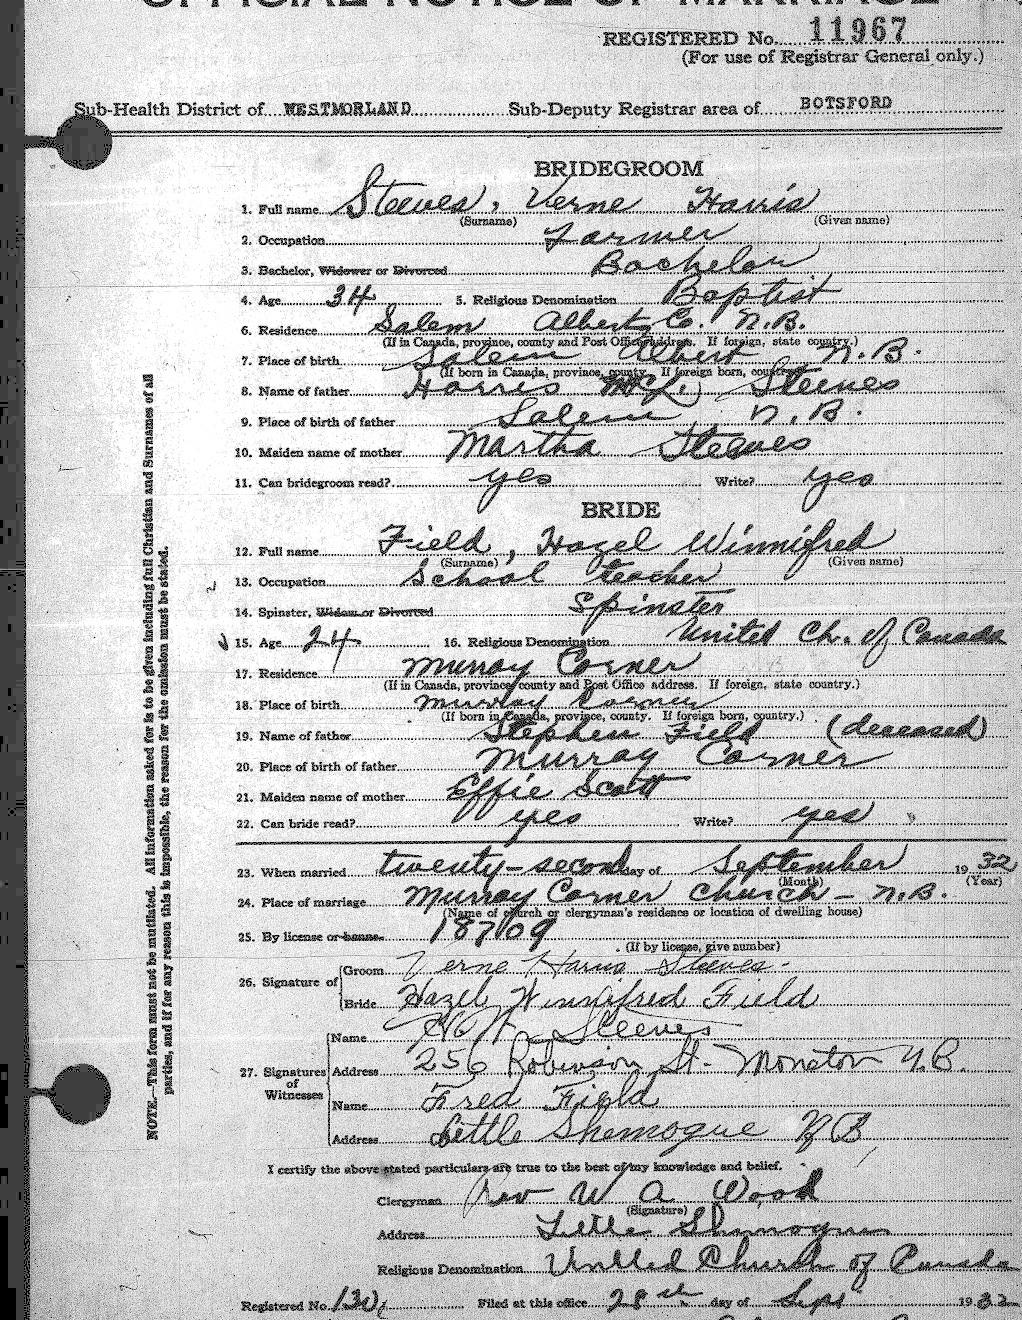 OFFICIAL NOTICE OF MARRIAGE
REGISTERED No. 11967
(For use of Registrar General only.)
Sub-Health District of WESTMORLAND Sub-Deputy Registrar area of BOTSFORD
BRIDEGROOM
1. Full name Steeves, Verne Harris
(Surname) (Given name)
2. Occupation Farmer
3. Bachelor, Widower or Divorced Bachelor
4. Age 34 5. Religious Denomination Baptist
6. Residence Salem Albert Co. N.B.
(If in Canada, province, county and Post Office address. If foreign, state country.)
7. Place of birth Salem Albert N.B.
(If born in Canada, province, county. If foreign born, country.)
8. Name of father Harris Steeves
9. Place of birth of father Salem N.B.
10. Maiden name of mother Martha Steeves
11. Can bridegroom read? yes Write? yes
BRIDE
12. Full name Field, Hazel Winnifred
(Surname) (Given name)
13. Occupation School teacher
14. Spinster, Widow or Divorced Spinster
15. Age 24 16. Religious Denomination United Ch. of Canada
17. Residence Murray Corner
(If in Canada, province, county and Post Office address. If foreign, state country.)
18. Place of birth Murray Corner
(If born in Canada, province, county. If foreign born, country.)
19. Name of father Stephen Field (deceased)
20. Place of birth of father Murray Corner
21. Maiden name of mother Effie Scott
22. Can bride read? yes Write? yes
23. When married twenty-second day of September 1932
(Month) (Year)
24. Place of marriage Murray Corner Church - N.B.
(Name of church or clergyman's residence or location of dwelling house)
25. By license or banns 18709
(If by license, give number)
26. Signature of Groom Verne Harris Steeves
Bride Hazel Winnifred Field
27. Signatures of Witnesses
Name Steeves
Address 256 Robinson St. Moncton N.B.
Name Fred Field
Address Little Shemogue N B
I certify the above stated particulars are true to the best of my knowledge and belief.
Clergyman Rev W A Wood
(Signature)
Address Little Shemogue
Religious Denomination United Church of Canada
Registered No. Filed at this office 28th day of Sept 1932
NOTE.—This form must not be mutilated. All information asked for is to be given including full Christian and Surnames of all
parties, and if for any reason this is impossible, the reason for the omission must be stated.